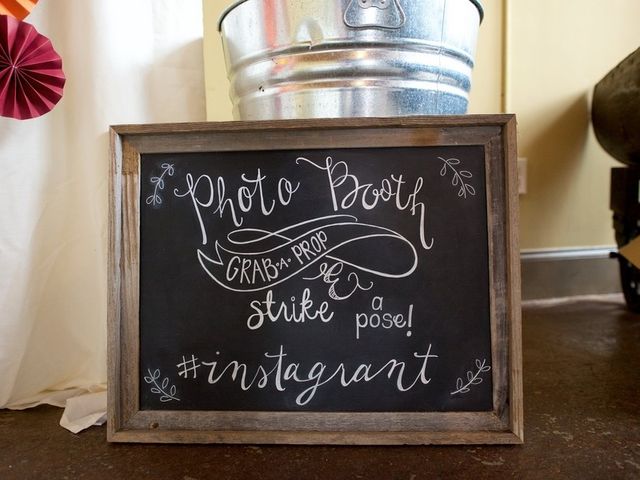 Photo Booth
GRAB·A·PROP
&
strike a pose!
#instagrant